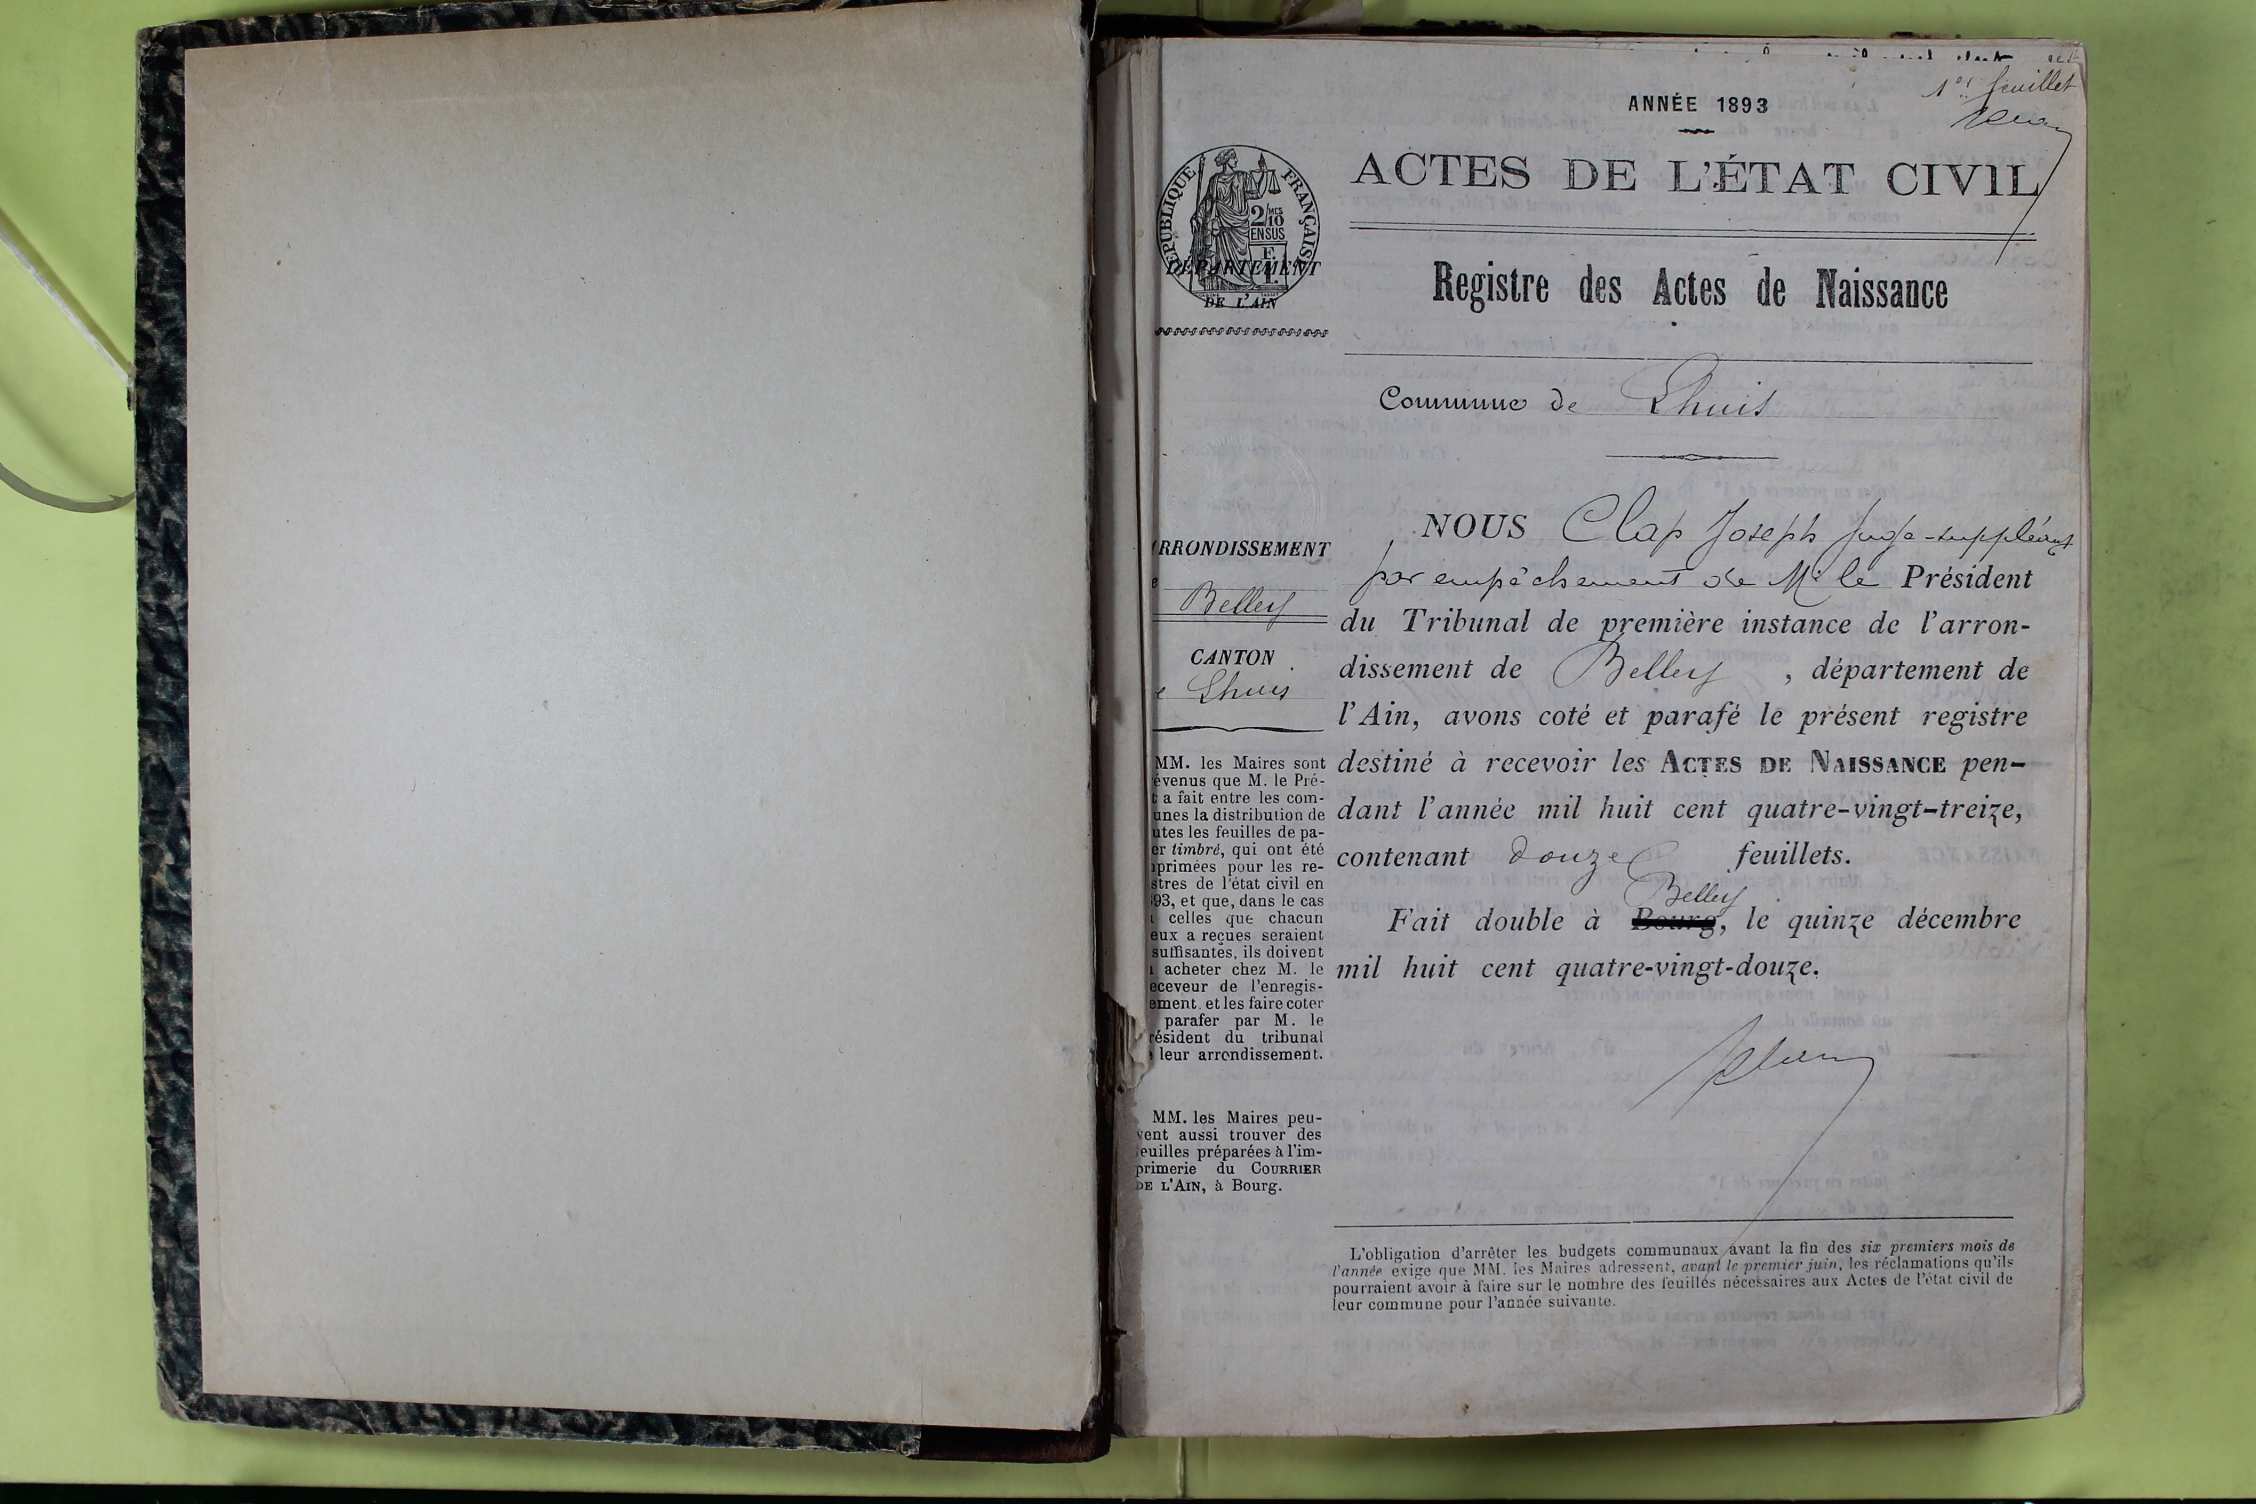 1er feuillet
ANNÉE 1893
ACTES DE L'ÉTAT CIVIL
RÉPUBLIQUE FRANÇAISE
2/10 MES
EN SUS
F.
1.
DÉPARTEMENT
DE L'AIN
Registre des Actes de Naissance
Commune de Lhuis
ARRONDISSEMENT
Belley
CANTON
Lhuis
MM. les Maires sont
évenus que M. le Pré-
t a fait entre les com-
unes la distribution de
utes les feuilles de pa-
er timbré, qui ont été
primées pour les re-
stres de l'état civil en
93, et que, dans le cas
celles que chacun
eux a reçues seraient
suffisantes, ils doivent
acheter chez M. le
eceveur de l'enregis-
ement et les faire coter
parafer par M. le
résident du tribunal
leur arrondissement.
MM. les Maires peu-
vent aussi trouver des
feuilles préparées à l'im-
primerie du COURRIER
DE L'AIN, à Bourg.
NOUS Clap Joseph Juge-suppléant
par empêchement de Mr le Président
du Tribunal de première instance de l'arron-
dissement de Belley, département de
l'Ain, avons coté et parafé le présent registre
destiné à recevoir les ACTES DE NAISSANCE pen-
dant l'année mil huit cent quatre-vingt-treize,
contenant douze feuillets.
Belley
Fait double à Bourg, le quinze décembre
mil huit cent quatre-vingt-douze.
L'obligation d'arrêter les budgets communaux avant la fin des six premiers mois de
l'année exige que MM. les Maires adressent, avant le premier juin, les réclamations qu'ils
pourraient avoir à faire sur le nombre des feuilles nécessaires aux Actes de l'état civil de
leur commune pour l'année suivante.